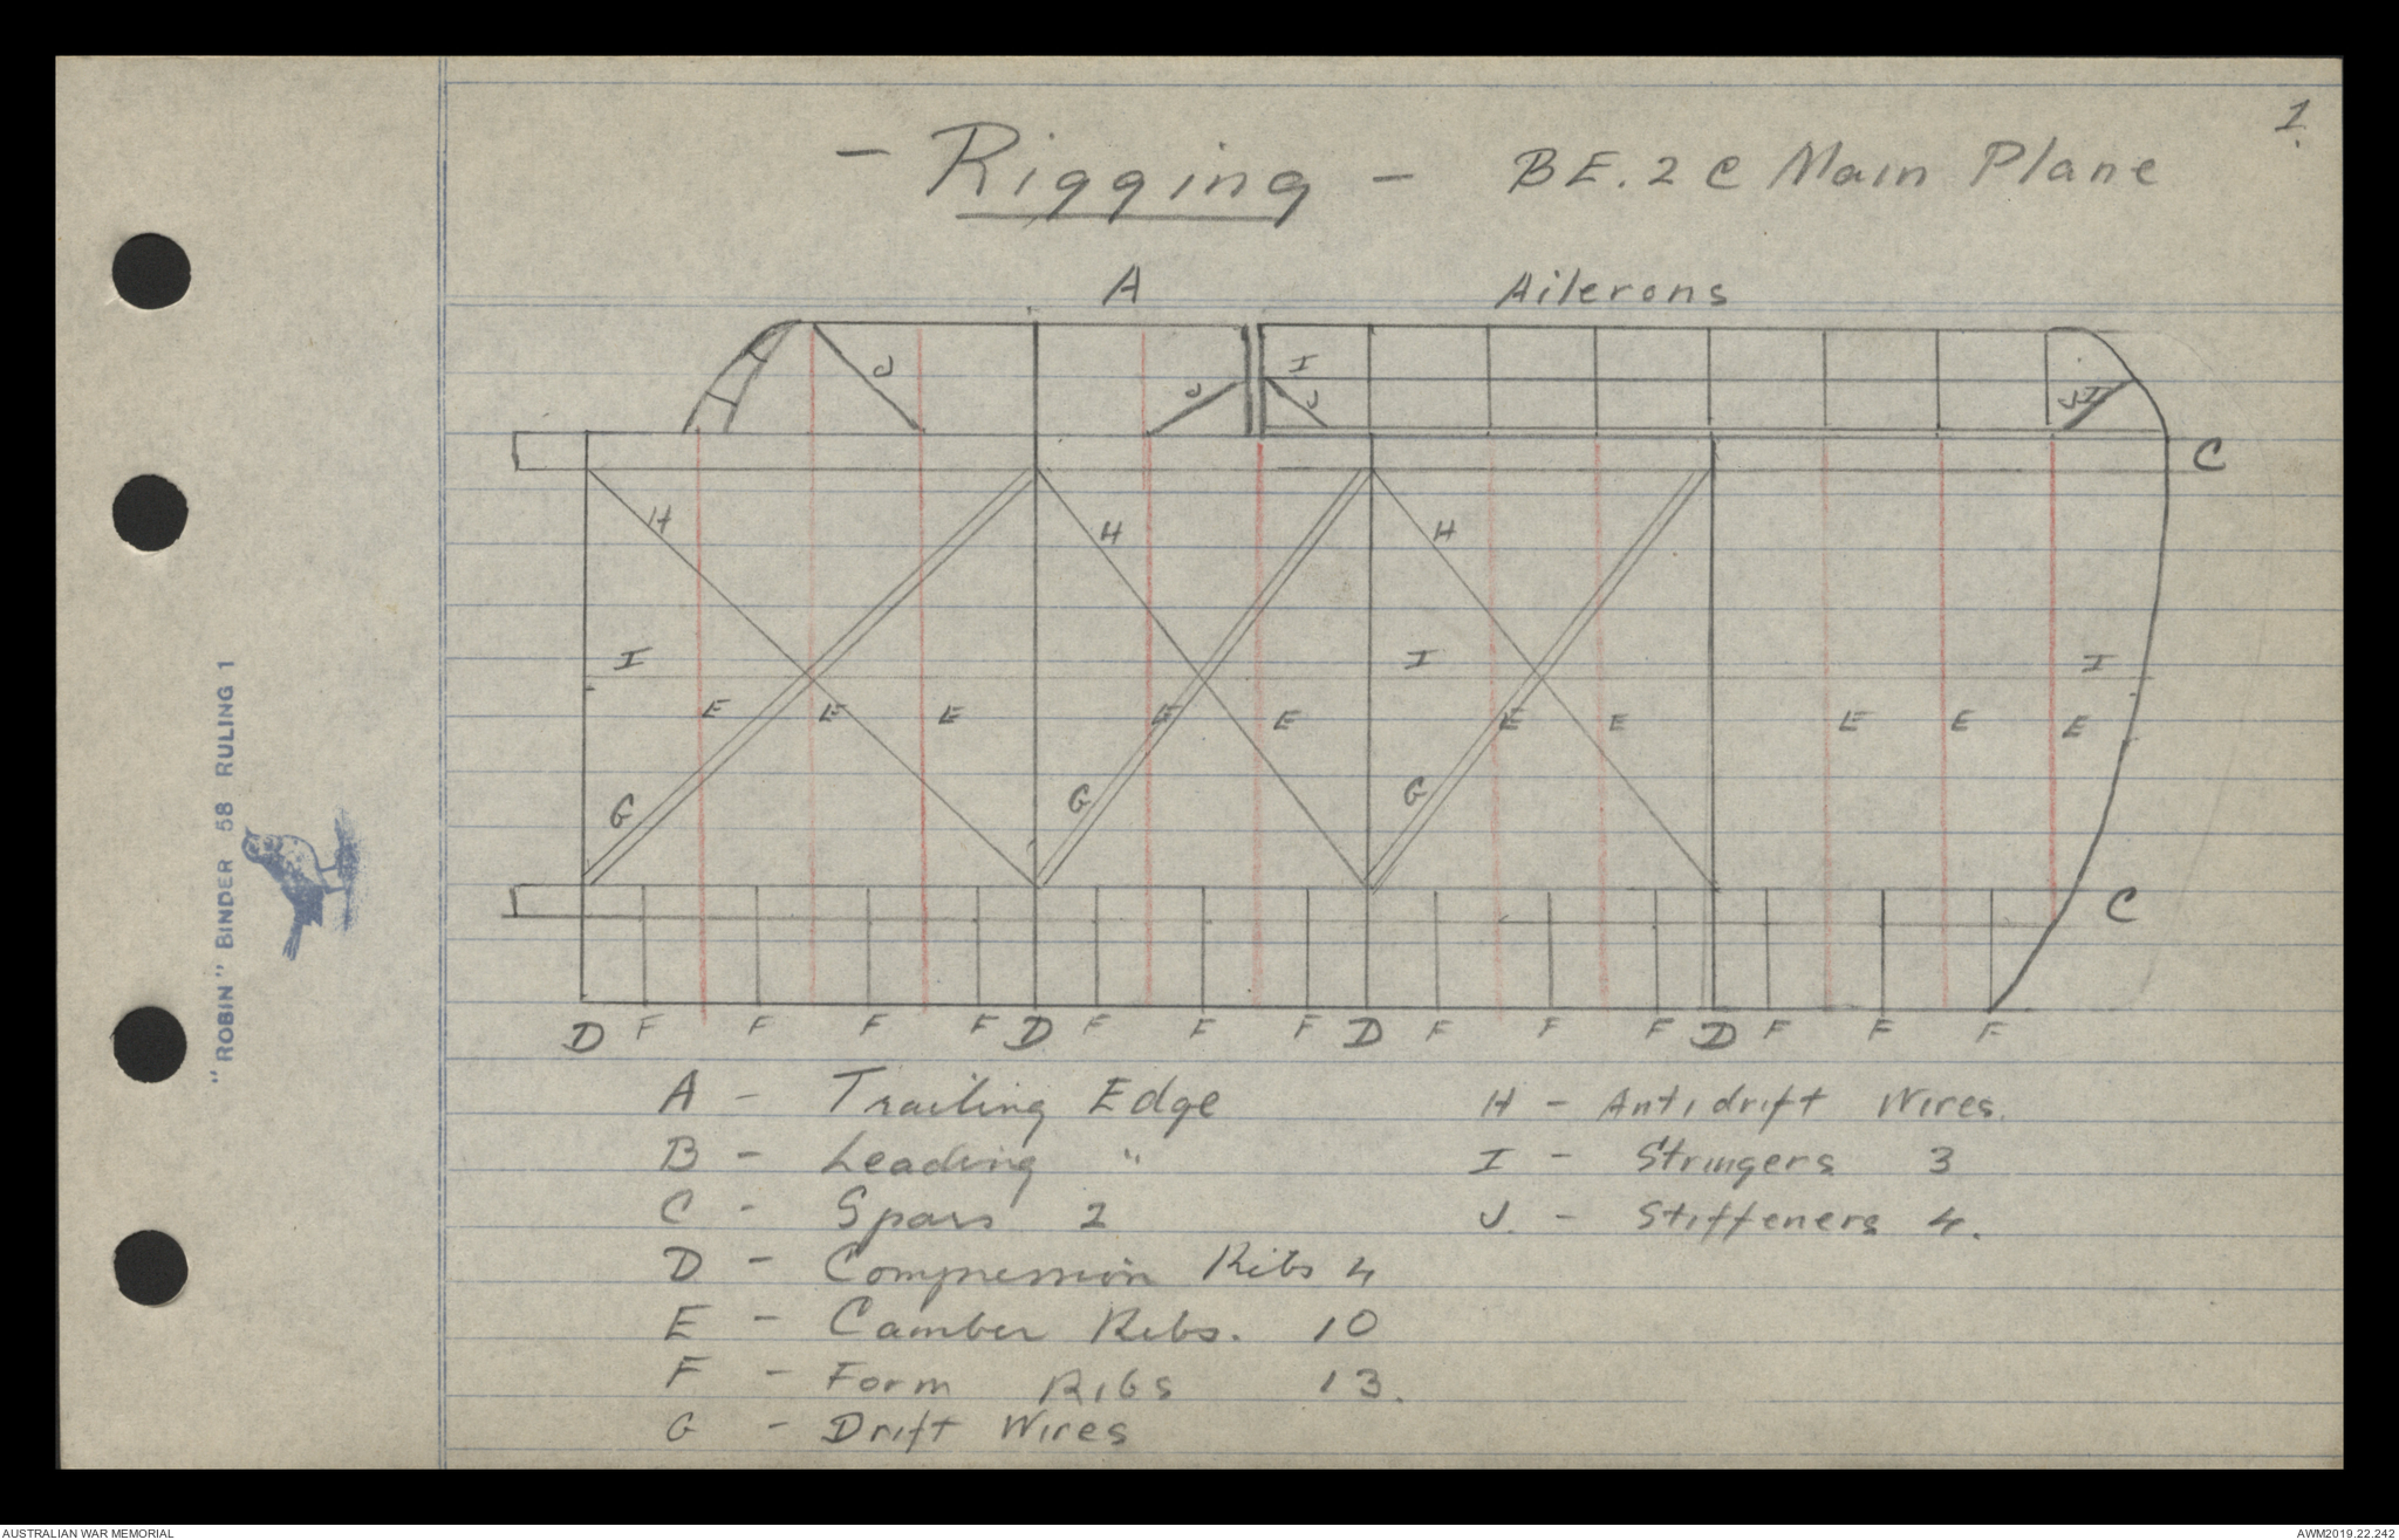 1.
- Rigging - BE.2c Main Plane
A Ailerons
J J I J J I
C
H H H
I I I
E E E E E E E E E E
G G G
C
D F F F F D F F F D F F F D F F F
A - Trailing Edge
B - Leading "
C - Spars 2
D - Compression Ribs 4
E - Camber Ribs. 10
F - Form Ribs 13.
G - Drift Wires
H - Antidrift Wires.
I - Stringers 3
J. - Stiffeners 4.
"ROBIN" BINDER 58 RULING 1
AUSTRALIAN WAR MEMORIAL
AWM2019.22.242